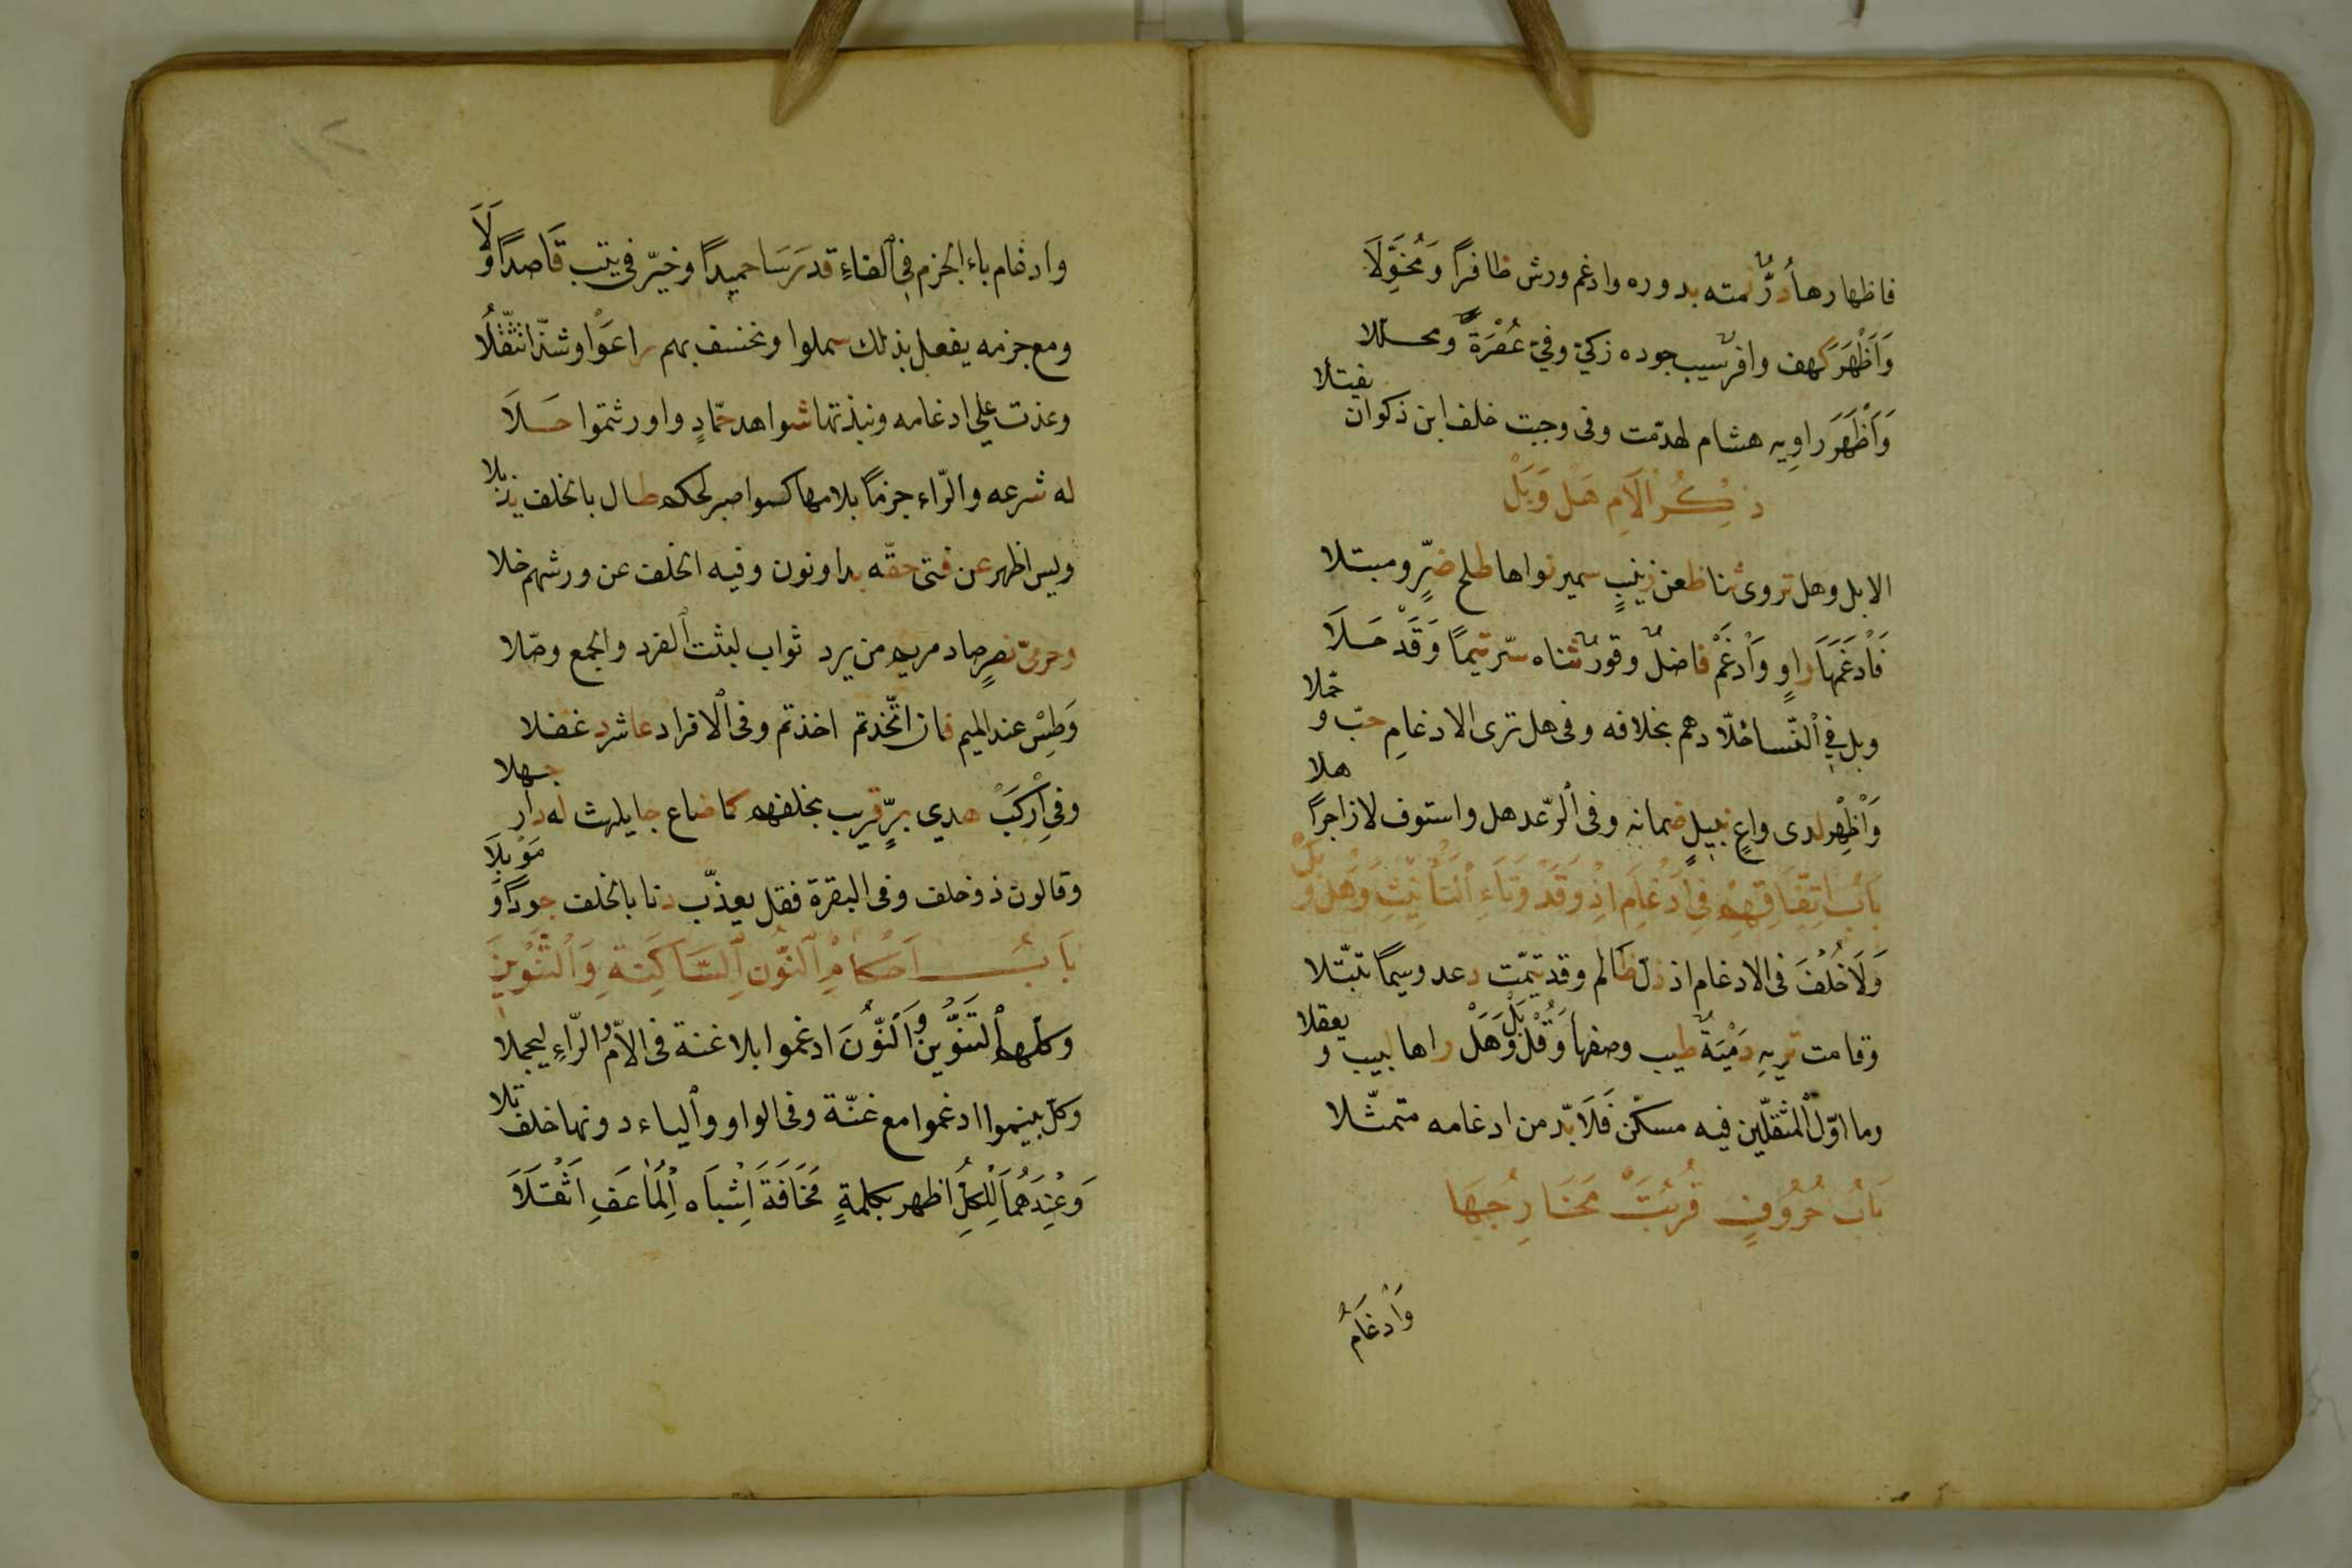 فاظهارها دُرٌّ نمته بدوره وادغم ورش ظافرًا وَمُخَوِّلَا
وَاَظْهَرَ كهف وافر سيب جوده زكيّ وفيّ عُصْرَةً ومحلّلا
وَاَظْهَرَ راوِيه هشام لهدّمت وفى وجبت خلف ابن ذكوان يفتلا
ذِكْرُ لَامِ هَلْ وَبَلْ
الا بل وهل تروى ثنا ظعن زينبٍ سمير نواها طلح ضرٍّ ومبتلا
فَاَدْغَمَهَا راوٍ وَاَدْغَمَ فاضلٌ وقورٌ ثناه سرّ تيمًا وَقَدْ حَلَا
وبل فِي ٱلنّسا خلّادهم بخلافه وفى هل ترى الادغامِ حبّ وحمّلا
وَاَظْهِرْ لدى واعٍ نبيلٍ ضمانه وفى ٱلرّعد هل واستوف لا زاجرًا هلا
بَابُ اتِّفَاقِهِمْ فِي اِدْغَامِ اِذْ وَقَدْ وَتَاءِ ٱلتَّأْنِيثِ وَهَلْ وَبَلْ
وَلَا خُلْفَ فى الادغام اذ ذلّ ظالم وقد تيّمت دعد وسيمًا تبتّلا
وقامت تريهِ دُمْيَةٌ طيب وصفها وَقُلْ بَلْ وَهَلْ راها لبيب ويعقلا
وما اوّل ٱلمثقلّين فيه مسكّن فَلَا بدّ من ادغامه متمثّلا
بَابُ حُرُوفٍ قُرُبَتْ مَخَارِجُهَا
وَاِدْغَامُ
وادغام باء الجزم فِي ٱلفاءِ قد رَسَا حميدًا وخيّر فى يتب قَاصدًا وَلَا
ومع جزمه يفعل بذلك سملوا ونخسف بهم راعَوْا وشذّا تثقّلُا
وعذت على ادغامه ونبذتها شواهد حمّادٍ واورثتموا حَلَا
له شرعه والرّاء جزمًا بلامها كسواصبر لحكم طال بالخلف يذبلا
ويس اظهر عن فتى حقّه بدا ونون وفيه الخلف عن ورشهم خلا
وحرمىّ نصرٍ صاد مريم من يرد ثواب لبثت ٱلفرد والجمع وصّلا
وَطسْ عند الميم فاز اتّخذتم اخذتم وفى ٱلافراد عاشر دغفلا
وفى اَرْكَبْ هدي برٍّ قريب بخلفهم كما ضاع جا يلهث له دار جهلا
وقالون ذو خلف وفى البقرة فقل يعذّب دنا بالخلف جودًا وَمَوْبِلَا
بَابُ اَحْكَامِ ٱلنُّونِ ٱلسَّاكِنَةِ وَٱلتَّنْوِينِ
وكلهم ٱلتَنْوِينَ وَٱلنّونَ ادغموا بلا غنة فى الاّم والرّاءِ ليجملا
وكلّ بينموا ادغموا مع غنّة وفى الواو وٱلياء دونها خلف تلا
وَعِنْدَهُمَا لِلْكُلِّ اظهر بكلمةٍ مَخَافَةَ اِشْبَاه اِلْمُضَاعَفِ اَثْقَلَا